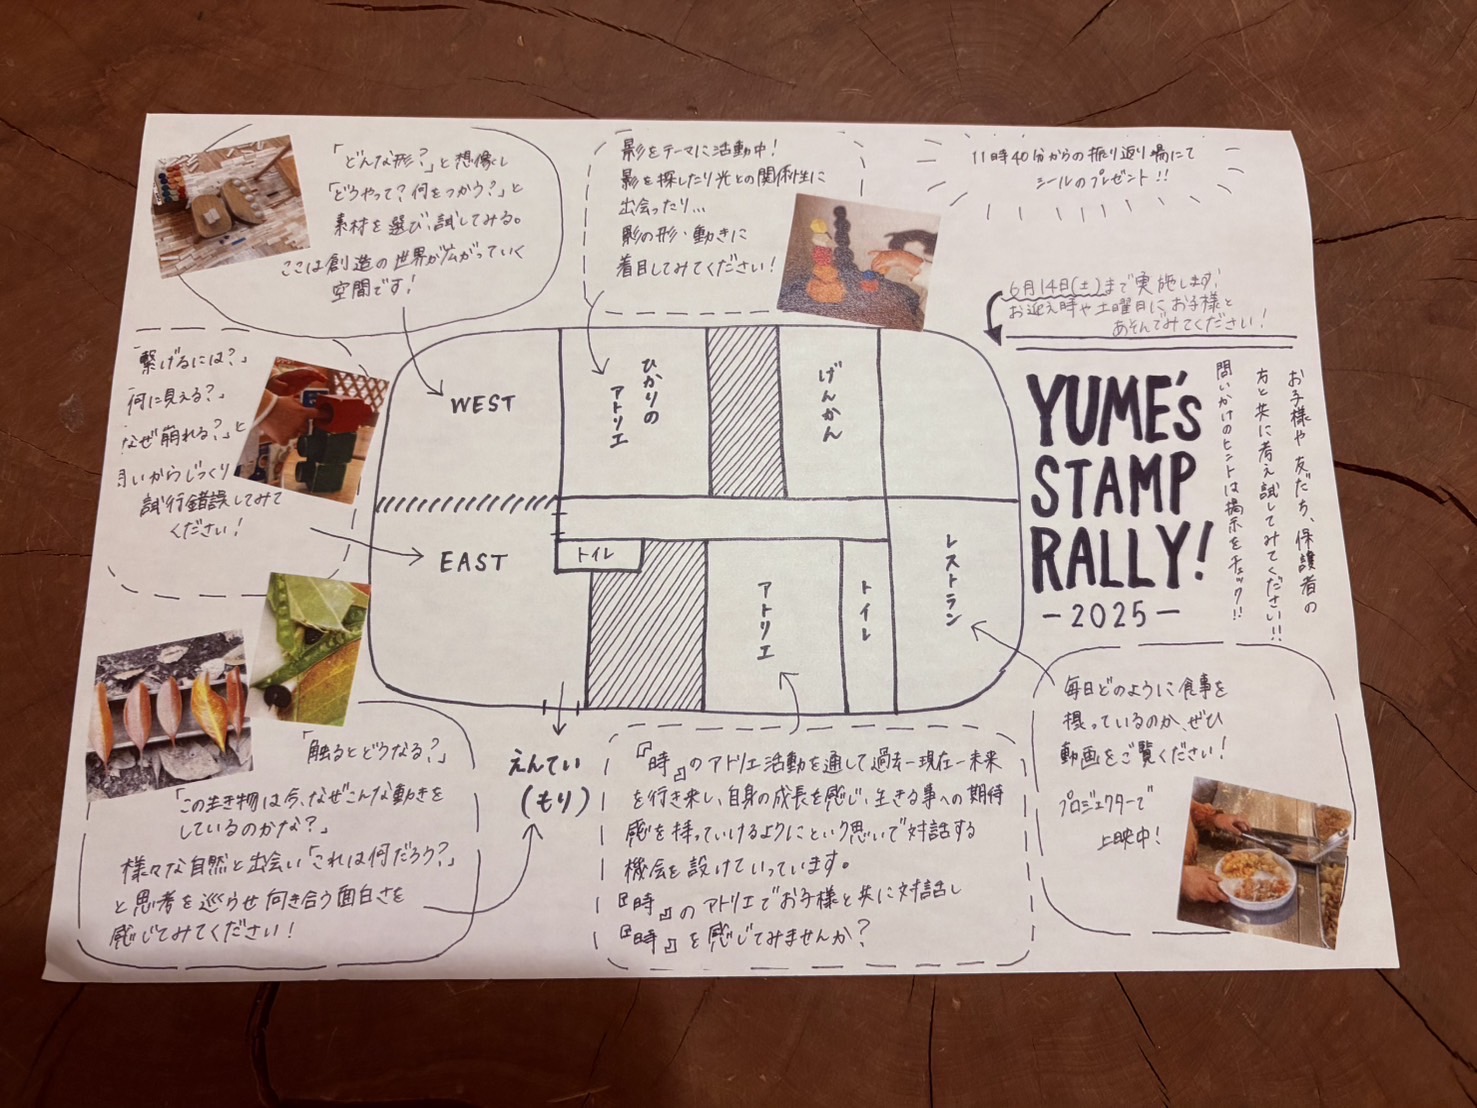 「どんな形?」と想像し
「どうやって?何をつかう?」と
素材を選び、試してみる。
ここは創造の世界が広がっていく
空間です!
影をテーマに活動中!
影を探したり光との関係性に
出会ったり...
影の形・動きに
着目してみてください!
11時40分からの振り返り場にて
シールのプレゼント!!
6月14日(土)まで実施します!
お迎え時や土曜日に、お子様と
あそんでみてください!
YUME's
STAMP
RALLY!
-2025-
お子様や友だち、保護者の
方と共に考え試してみてください!!
問いかけのヒントは掲示をチェック!!
「繋げるには?」
「何に見える?」
「なぜ崩れる?」と
いからじっくり
試行錯誤してみて
ください!
WEST
ひかりの
アトリエ
げんかん
EAST
トイレ
アトリエ
トイレ
レストラン
えんてい
(もり)
「触るとどうなる?」
「この生き物は今、なぜこんな動きを
しているのかな?」
様々な自然と出会い「これは何だろう?」
と思考を巡らせ向き合う面白さを
感じてみてください!
『時』のアトリエ活動を通して過去ー現在ー未来
を行き来し、自身の成長を感じ、生きる事への期待
感を持っていけるようにという思いで対話する
機会を設けていっています。
『時』のアトリエでお子様と共に対話し
『時』を感じてみませんか?
毎日どのように食事を
摂っているのか、ぜひ
動画をご覧ください!
プロジェクターで
上映中!